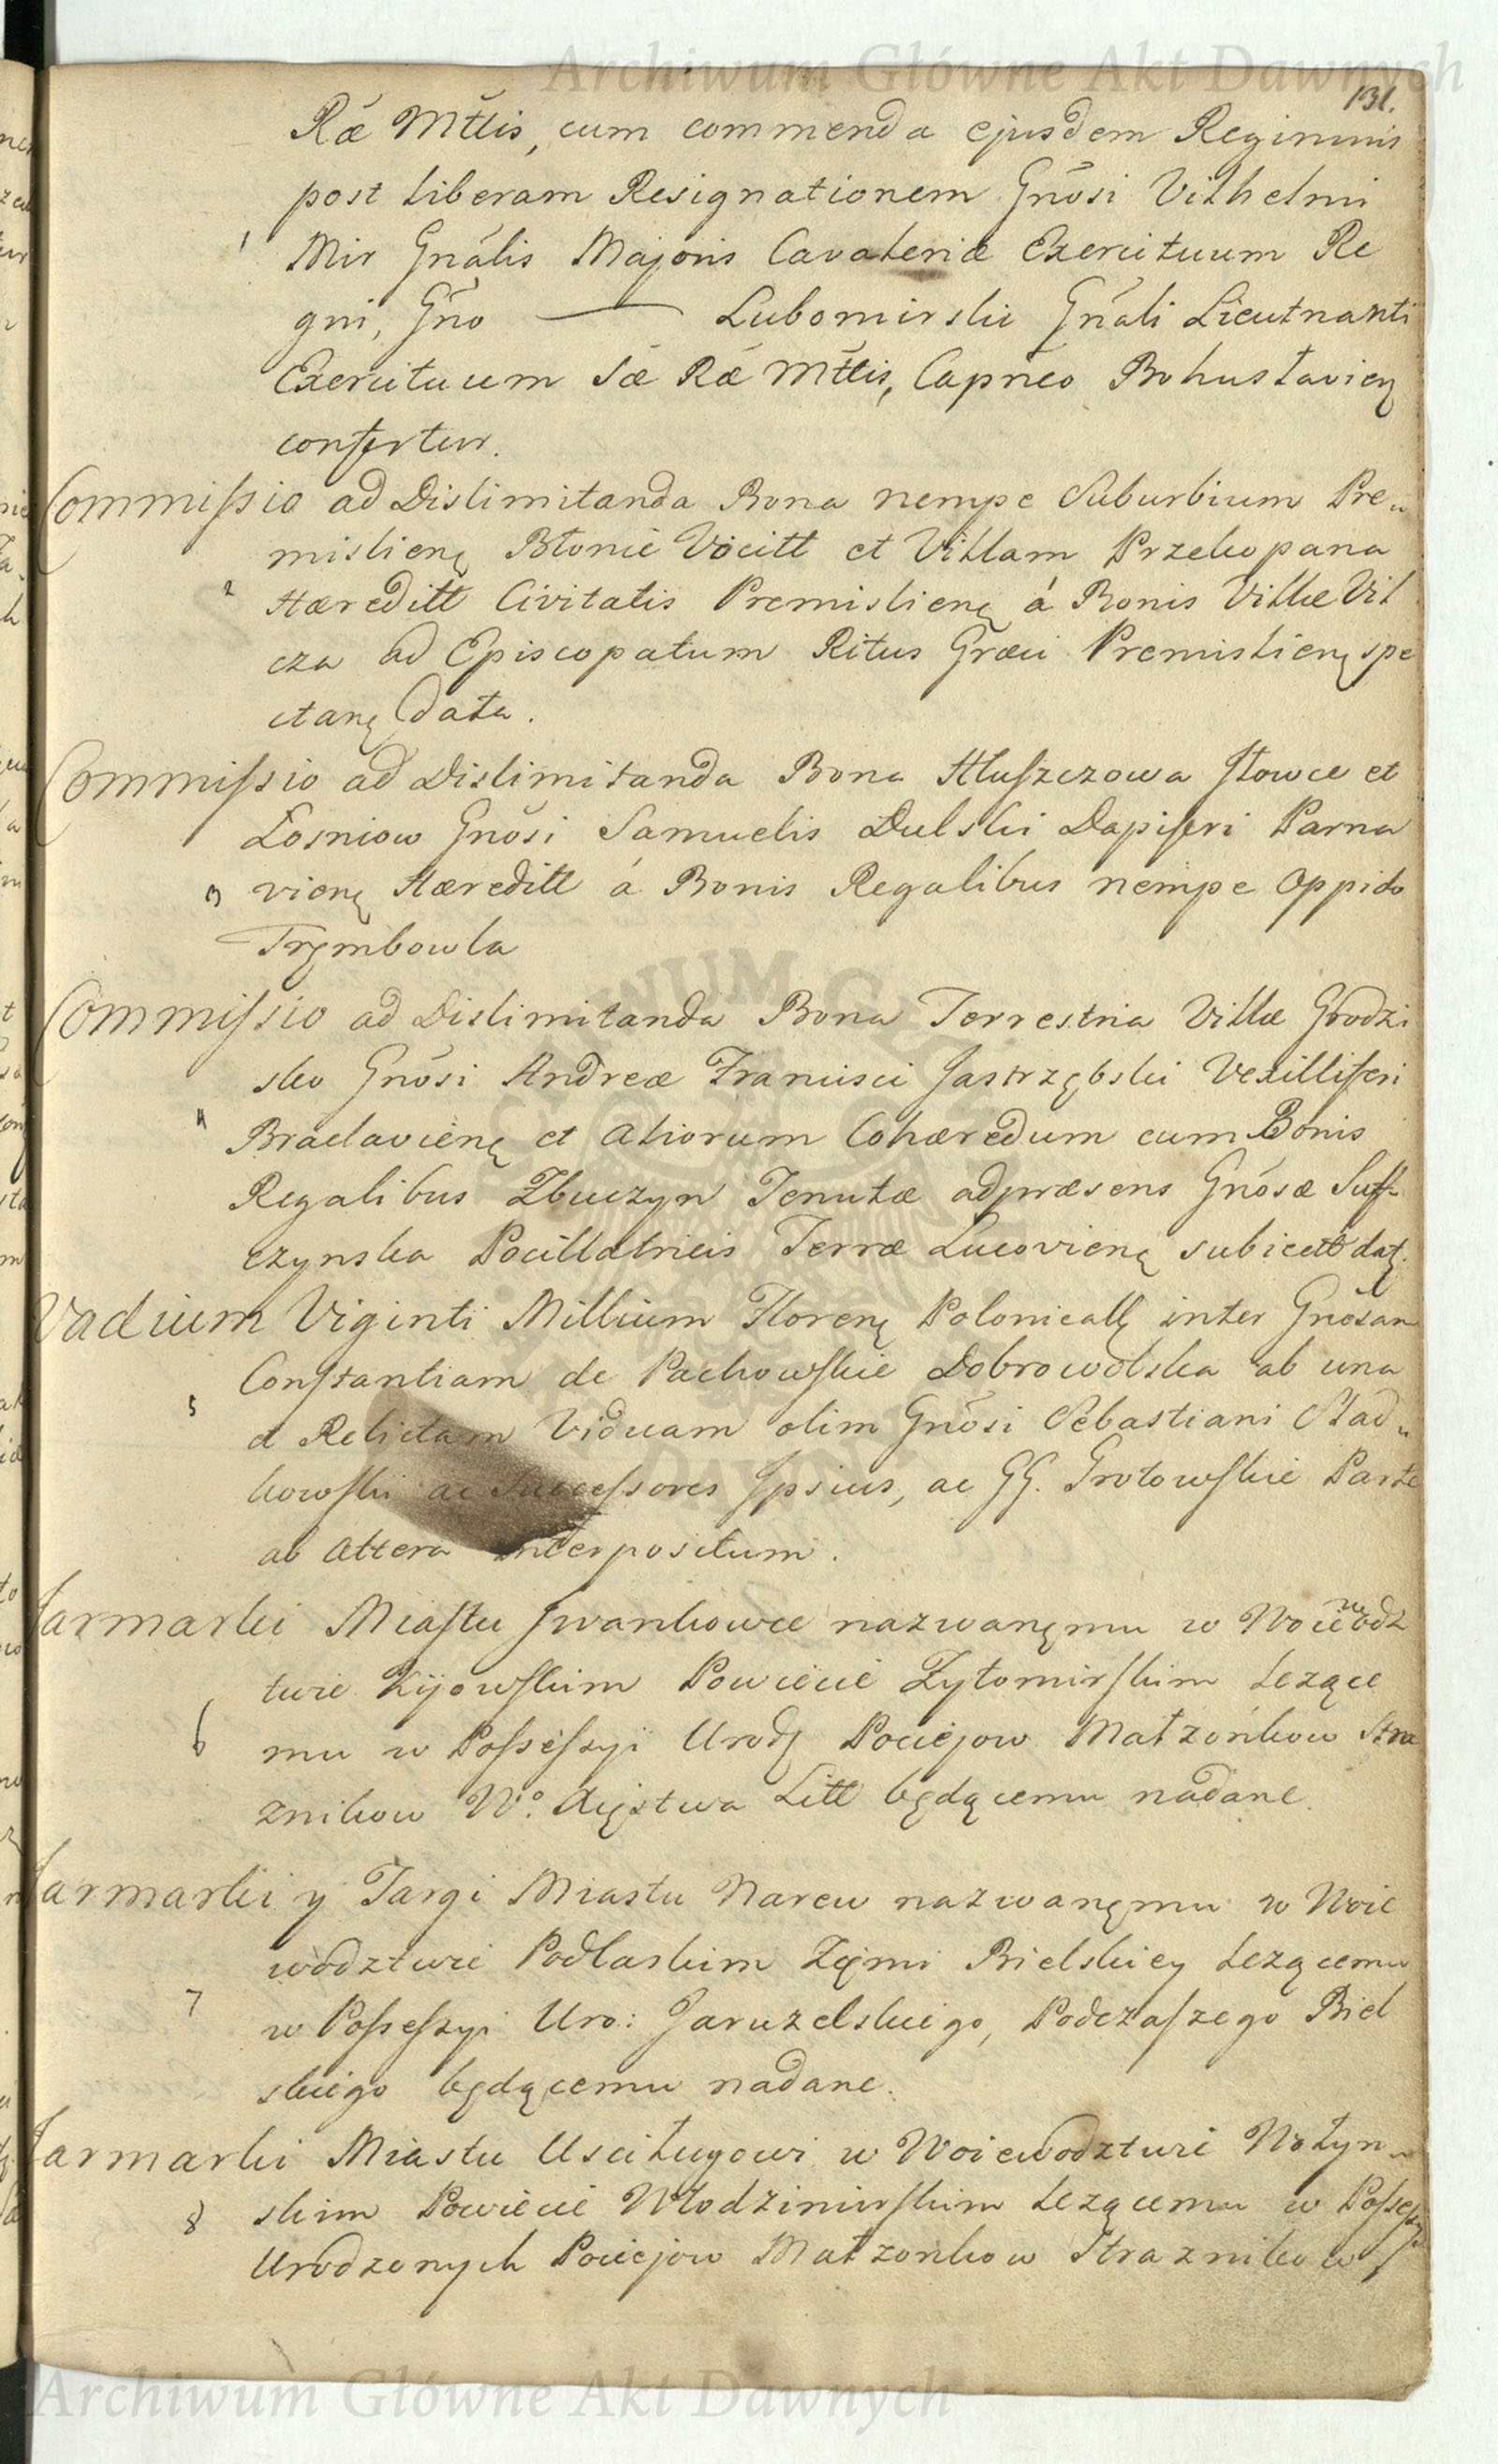 Archiwum Główne Akt Dawnych
131.
Ræ Mttis, cum commenda ejusdem Regiminis
post liberam Resignationem Gnosi Vilhelmi
1 Mir Gnalis Majoris Cavaleriæ Exercituum Re
gni, Gno — Lubomirski Gnali Lieutnanti
Exercituum Sæ Ræ Mttis, Capneo Bohuslavien
confertur.
Commissio ad Dislimitanda Bona nempe Suburbium Pre„
mislienę Błonie Vocitt et Villam Przekopana
2 Hæreditt Civitatis Premislienę á Bonis Villæ Vil
cza ad Episcopatum Ritus Græci Premislienę spe
ctanę data.
Commissio ad Dislimitanda Bona Hluszczowa Iłowce et
Łosniow Gnosi Samuelis Dulski Dapiferi Parna
3 vienę Hæreditt á Bonis Regalibus nempe Oppido
Trembowla
Commissio ad Dislimitanda Bona Terrestria Villæ Grodzi
sko Gnosi Andreæ Francisci Jastrzębski Vexilliferi
4 Braclavienę et Aliorum Cohæredum cum Bonis
Regalibus Zbuczyn Tenutæ adpræsens Gnosæ Suff„
czynska Pocillatricis Terræ Lucovienę subiectt datę.
Vadium Viginti Millium Florenę Polonicallę inter Gnosam
Constantiam de Pachowskie Dobrowolska ab una
5 et Relictam Viduam olim Gnosi Sebastiani Stad„
kowski ac Successores Ipsius, ac GG. Grotowskie Parte
ab Altera interpositum.
Jarmarki Miastu Iwankowce nazwanęmu w Woiewodz
twie Kijowskim Powiecie Zytomirskim Lezące
6 mu w Possessyi Urodz Pociejow Małzonkow Stra
znikow W.º Xięstwa Litt będącemu nadane.
Jarmarki y Targi Miastu Narew nazwanęmu w Woie
wodztwie Podlaskim Zięmi Bielskiey Lezącemu
7 w Possessyi Uro: Jaruzelskiego, Podczaszego Biel
skiego będącemu nadane.
Jarmarki Miastu Usciługowi w Woiewodztwie Wołyn„
8 skim Powiecie Włodzimirskim Lezącemu w Possessyi
Urodzonych Pociejow Małzonkow Straznikow
Archiwum Główne Akt Dawnych